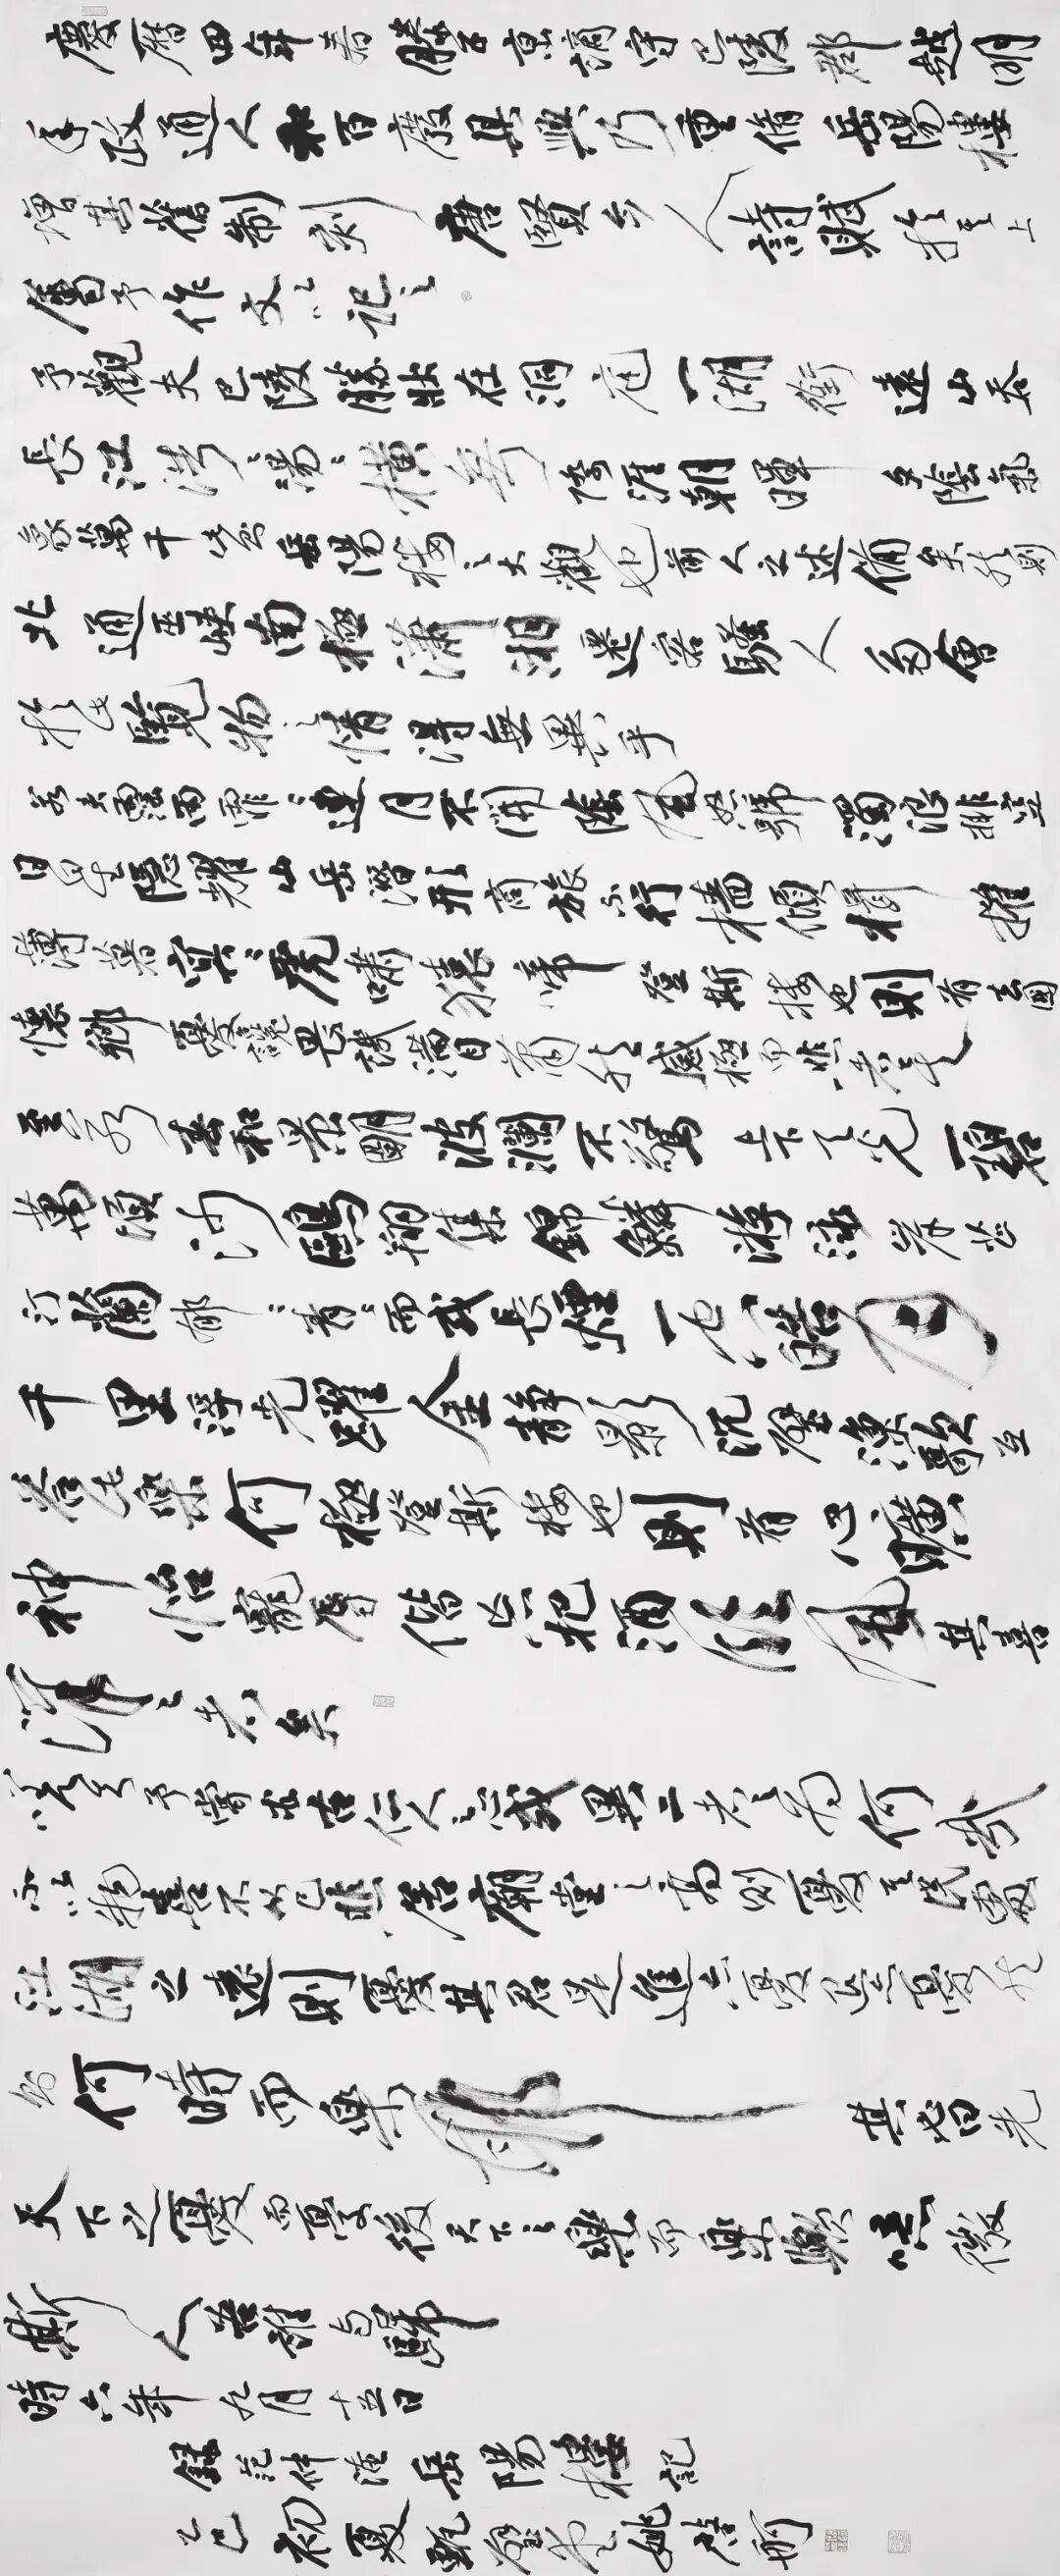 慶曆四年春滕子京謫守巴陵郡越明
年政通人和百廢具興乃重脩岳陽樓
增其舊制刻唐賢今人詩賦於其上
屬予作文以記之
予觀夫巴陵勝狀在洞庭一湖銜遠山吞
長江浩〻湯〻橫無際涯朝暉夕陰氣
象萬千此則岳陽樓之大觀也前人之述備矣然則
北通巫峽南極瀟湘遷客騷人多會
於此覽物之情得無異乎
若夫霪雨霏〻連月不開陰風怒號濁浪排空
日星隱耀山岳潛形商旅不行檣傾楫摧
薄暮冥〻虎嘯猿啼登斯樓也則有去國
懷鄉憂讒畏譏滿目蕭然感極而悲者矣
至若春和景明波瀾不驚上下天光一碧
萬頃沙鷗翔集錦鱗游泳岸芷
汀蘭郁〻青〻而或長煙一空皓月
千里浮光躍金靜影沉璧漁歌互
答此樂何極登斯樓也則有心曠
神怡寵辱偕忘把酒臨風其喜
洋〻者矣
嗟夫予嘗求古仁人之心或異二者之為何哉
不以物喜不以己悲居廟堂之高則憂其民處
江湖之遠則憂其君是進亦憂退亦憂然
則何時而樂耶其必曰先
天下之憂而憂後天下之樂而樂歟噫微
斯人吾誰與歸
時六年九月十五日
錄范仲淹岳陽樓記
乙巳初夏